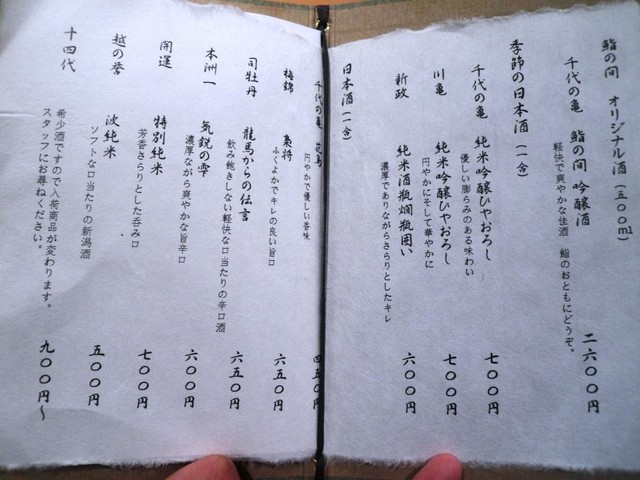 鮨の間 オリジナル酒(五〇〇ml)
千代の亀 鮨の間 吟醸酒 二六〇〇円
軽快で爽やかな佳酒 鮨のおともにどうぞ。
季節の日本酒(一合)
千代の亀 純米吟醸ひやおろし 七〇〇円
優しい膨らみのある味わい
川亀 純米吟醸ひやおろし 七〇〇円
円やかにそして華やかに
新政 純米酒瓶燗瓶囲い 六〇〇円
濃厚でありながらさらりとしたキレ
日本酒(一合)
千代の亀 花鳥 四五〇円
円やかで優しい香味
梅錦 梟将 六五〇円
ふくよかでキレの良い旨口
司牡丹 龍馬からの伝言 六五〇円
飲み飽きしない軽快な口当たりの辛口酒
本洲一 気鋭の雫 六〇〇円
濃厚ながら爽やかな旨辛口
開運 特別純米 七〇〇円
芳香さらりとした呑み口
越の誉 波純米 五〇〇円
ソフトな口当たりの新潟酒
十四代 九〇〇円〜
希少酒ですので入荷商品が変わります。
スタッフにお尋ねください。